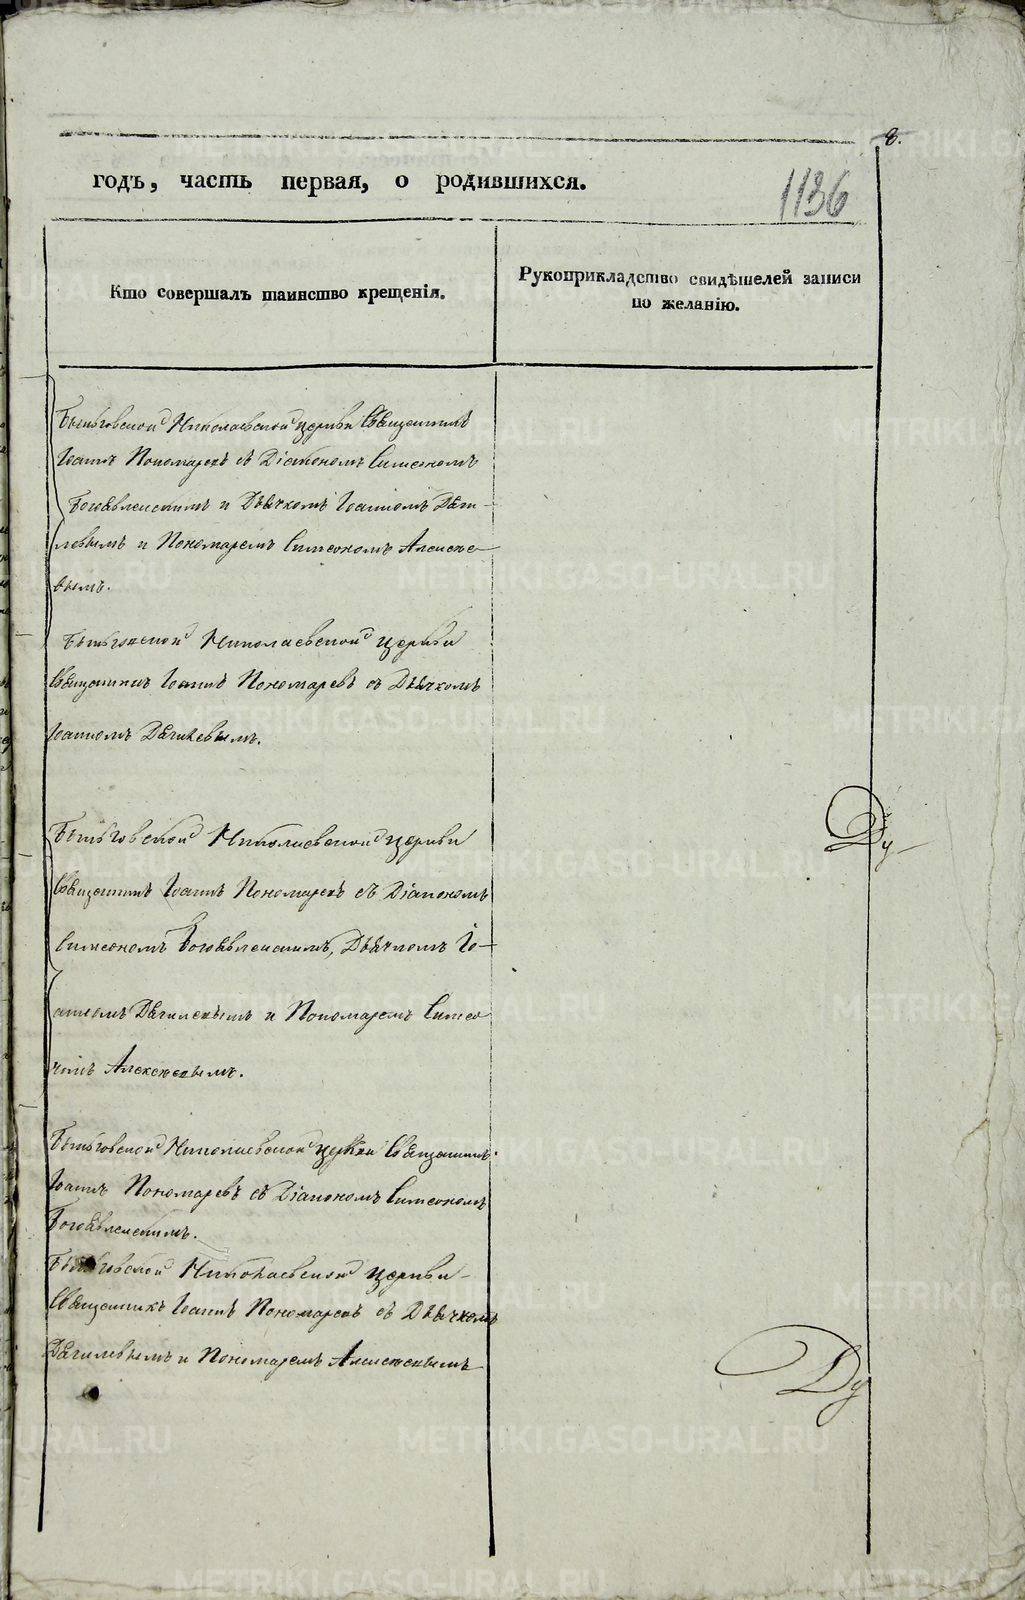 8.
годъ, часть первая, о родившихся.
1136
Кто совершалъ таинство крещенія.
Рукоприкладство свидѣтелей записи
по желанію.
Быньговской Николаевской церкви Священникъ
Іоаннъ Пономаревъ съ Діакономъ Симеономъ
Богоявленскимъ и Дьячкомъ Іоанномъ Дяги-
левымъ и Пономаремъ Симеономъ Алексѣе-
вымъ.
Быньговской Николаевской церкви
Священникъ Іоаннъ Пономаревъ съ Дьячкомъ
Іоанномъ Дягилевымъ.
Быньговской Николаевской церкви
Священникъ Іоаннъ Пономаревъ съ Діакономъ
Симеономъ Богоявленскимъ, Дьячкомъ Іо-
анномъ Дягилевымъ и Пономаремъ Симео
номъ Алексѣевымъ.
Быньговской Николаевской церкви Священникъ
Іоаннъ Пономаревъ съ Діакономъ Симеономъ
Богоявленскимъ.
Быньговской Николаевской церкви
Священникъ Іоаннъ Пономаревъ съ Дьячкомъ
Дягилевымъ и Пономаремъ Алексѣевымъ
Ду
Ду
METRIKI.GASO-URAL.RU